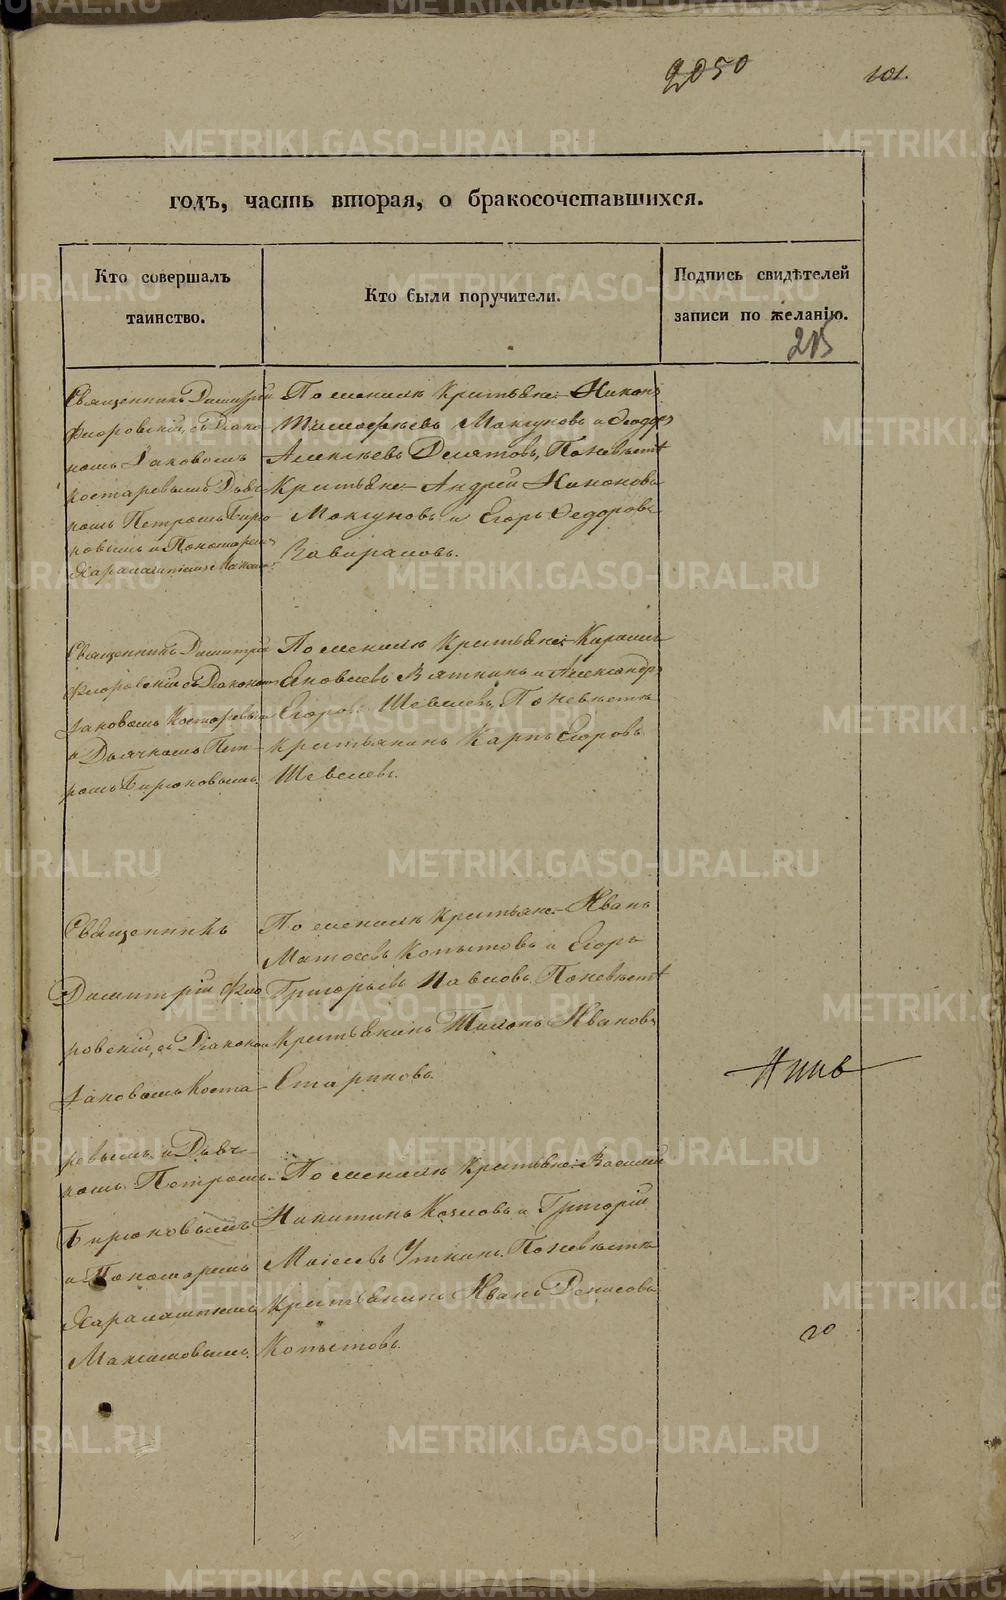 2050
101.
годъ, часть вторая, о бракосочетавшихся.
Кто совершалъ
таинство.
Кто были поручители.
Подпись свидѣтелей
записи по желанію.
215
Священникъ Димитрій
Флоровскій, съ Діако-
номъ Іаковомъ
Костаревымъ Дьяч-
комъ Петромъ Бирю-
ковымъ и Пономаремъ
По женихѣ Крестьяне: Никонъ
Тимофѣевъ Мокгуновъ и Ѳеодоръ
Алексѣевъ Десятовъ, По невѣстѣ
Крестьяне: Андрей Никоновъ
Мокгуновъ и Егоръ Ѳедоровъ
Завираловъ.
Священникъ Димитрій
Флоровскій съ Діакономъ
Іаковомъ Костаревымъ
и Дьячкомъ Пет-
ромъ Бирюковымъ.
По женихѣ Крестьяне:
Яковлевъ Вяткинъ и Александръ
Егоровъ Шевелевъ, По невѣстѣ
Крестьянинъ Карпъ Егоровъ
Шевелевъ.
Священникъ
Димитрій Фло-
ровскій, съ Діакономъ
Іаковомъ Коста-
ревымъ и Дьяч-
комъ Петромъ
Бирюковымъ
и Пономаремъ
Харалампіемъ
Максимовымъ.
По женихѣ Крестьяне: Иванъ
Матвеевъ Копытовъ и Егоръ
Григорьевъ Павловъ, По невѣстѣ
Крестьянинъ Тихонъ Ивановъ
Стариковъ.
По женихѣ Крестьяне: Василій
Никитинъ Козловъ и Григорій
Моисеевъ Уткинъ. По невѣстѣ
Крестьянинъ Иванъ Денисовъ
Копытовъ.
20
METRIKI.GASO-URAL.RU